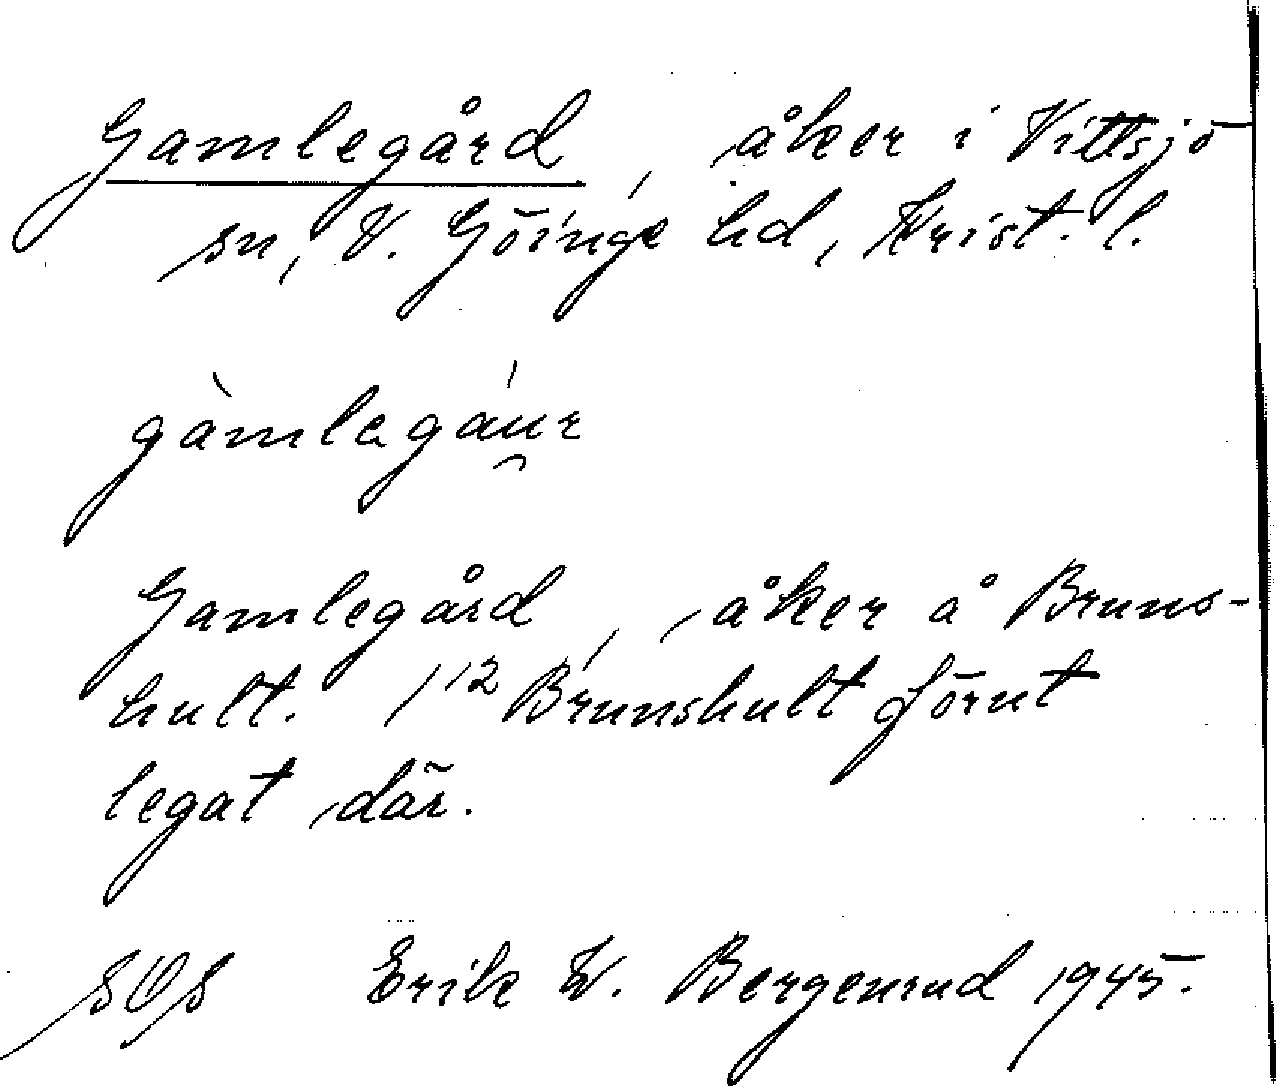 Gamlegård, åker i Vittsjö
sn, V. Göinge hd, Krist. l.
gàmlegáu̯r
Gamlegård, åker å Bruns-
hult. 1¹² Brunshult förut
legat där.
SOS Erik W. Bergenrud 1945.